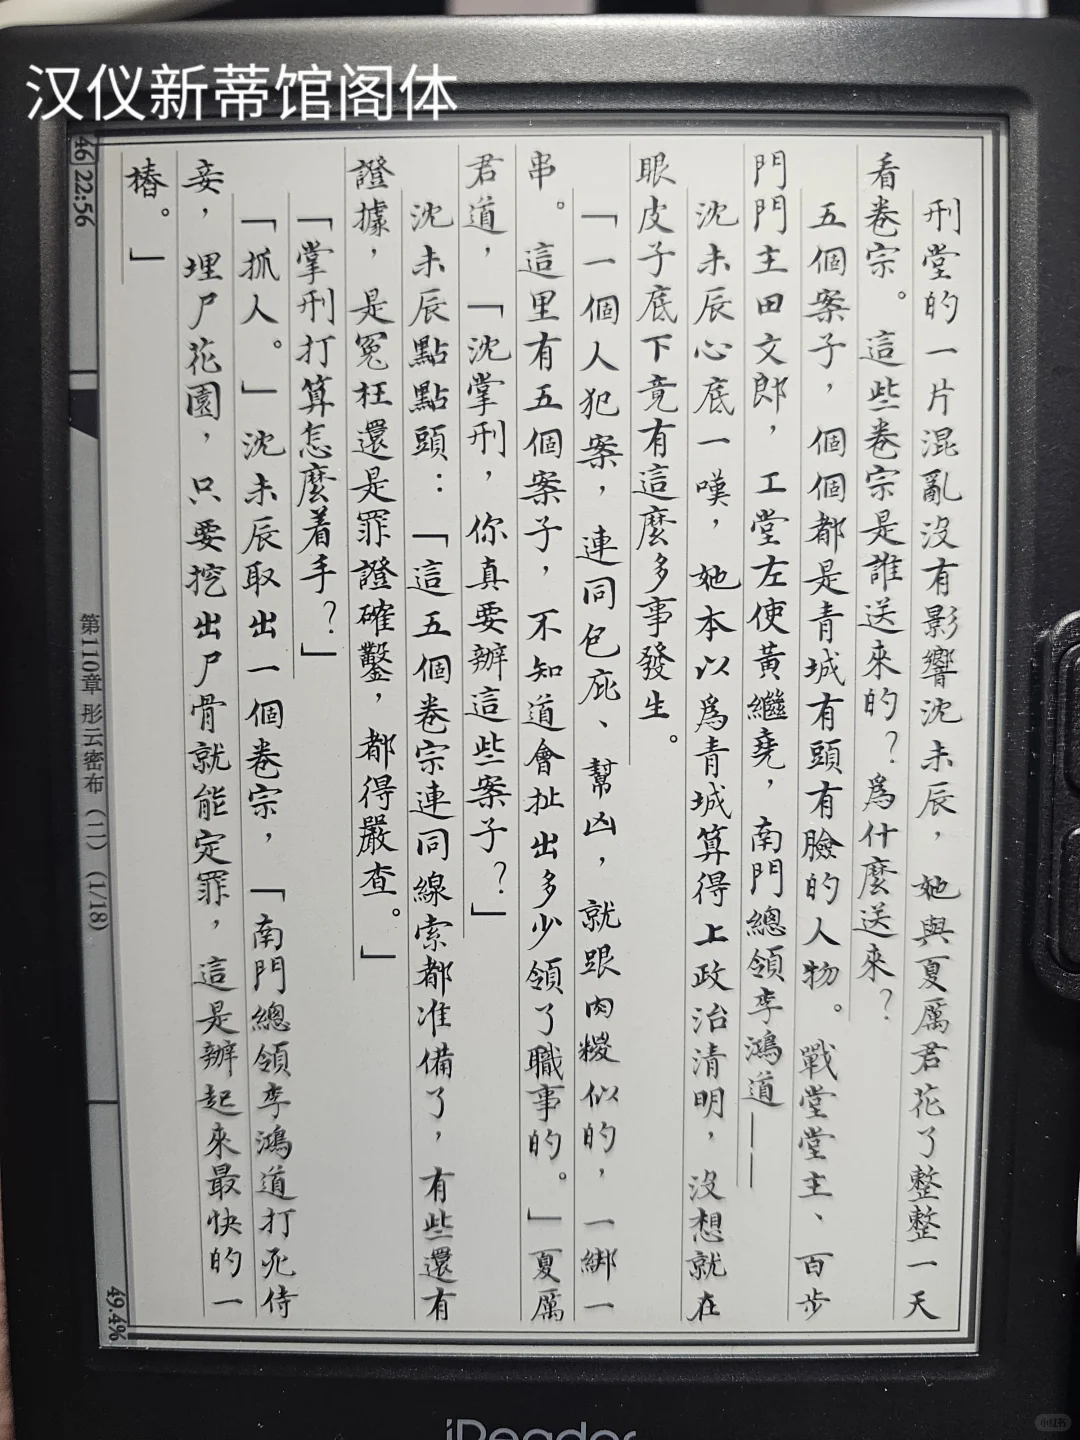 汉仪新蒂馆阁体
刑堂的一片混亂沒有影響沈未辰，她與夏厲君花了整整一天
看卷宗。這些卷宗是誰送來的？爲什麼送來？
五個案子，個個都是青城有頭有臉的人物。戰堂堂主、百步
門門主田文郎，工堂左使黃繼堯，南門總領李鴻道——
沈未辰心底一嘆，她本以爲青城算得上政治清明，沒想就在
眼皮子底下竟有這麼多事發生。
「一個人犯案，連同包庇、幫凶，就跟肉糉似的，一綁一
串。這里有五個案子，不知道會扯出多少領了職事的。」夏厲
君道，「沈掌刑，你真要辦這些案子？」
沈未辰點點頭：「這五個卷宗連同線索都准備了，有些還有
證據，是冤枉還是罪證確鑿，都得嚴查。」
「掌刑打算怎麼着手？」
「抓人。」沈未辰取出一個卷宗，「南門總領李鴻道打死侍
妾，埋尸花園，只要挖出尸骨就能定罪，這是辦起來最快的一
樁。」
46 22:56
第110章 彤云密布（二）（1/18）
49.4%
iReader
小红书